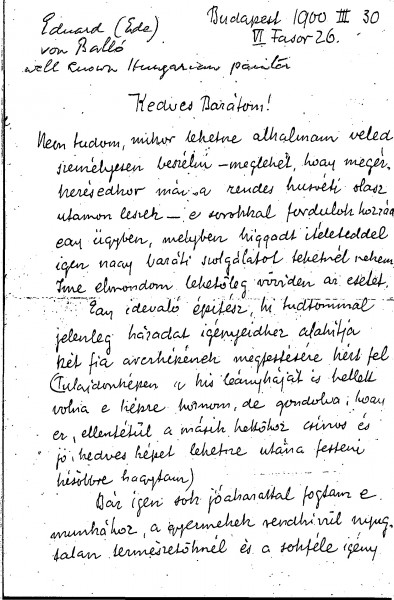 Eduard (Ede)
von Balló
well known Hungarian painter
Budapest 1900 III 30
VI Fasor 26.
Kedves Barátom!
Nem tudom, mikor lehetne alkalmam veled
személyesen beszélni – meglehet, hogy megér-
kezésedkor már a rendes husvéti olasz
utamon leszek – e sorokkal fordulok hozzád
egy ügyben, melyben higgadt itéleteddel
igen nagy baráti szolgálatot tehetnél nekem
Ime elmondom lehetőleg röviden az esetet.
Egy idevaló épitész, ki tudtommal
jelenleg házadat igényeidhez alakitja
két fia arcképének megfestésére kért fel
(Tulajdonképen a kis leánykáját is kellett
volna e képre hoznom, de gondolva, hogy
ez, ellentétül a másik kettőhöz csinos és
jó, kedves képet lehetne utána festeni
későbbre hagytam)
Bár igen sok jóakarattal fogtam e
munkához, a gyermekek rendkivül nyug-
talan természetöknél és a sokféle igény